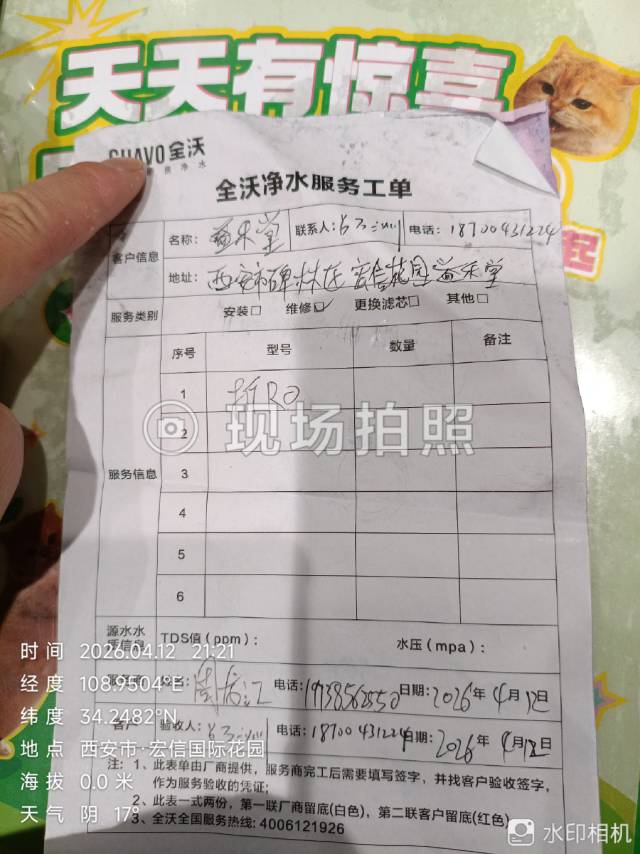 天天有惊喜
CHAVO 全沃
净水
全沃净水服务工单
客户信息 名称：益禾堂 联系人： 电话：18700431224
地址：西安市碑林区宏信花园益禾堂
起
服务类别 安装□ 维修☑ 更换滤芯□ 其他□
服务信息 序号 型号 数量 备注
1 拆RO
2
3
4
5
6
现场拍照
源水水质信息 TDS值（ppm）： 水压（mpa）：
电话： 日期：2026年4月12日
客户 验收人： 电话：18700431224 日期：2026年4月12日
注：1、此表单由厂商提供，服务商完工后需要填写签字，并找客户验收签字，
作为服务验收的凭证；
2、此表一式两份，第一联厂商留底(白色)，第二联客户留底(红色)
3、全沃全国服务热线：4006121926
时间 2026.04.12 21:21
经度 108.9504°E
纬度 34.2482°N
地点 西安市·宏信国际花园
海拔 0.0 米
天气 阴 17°
水印相机